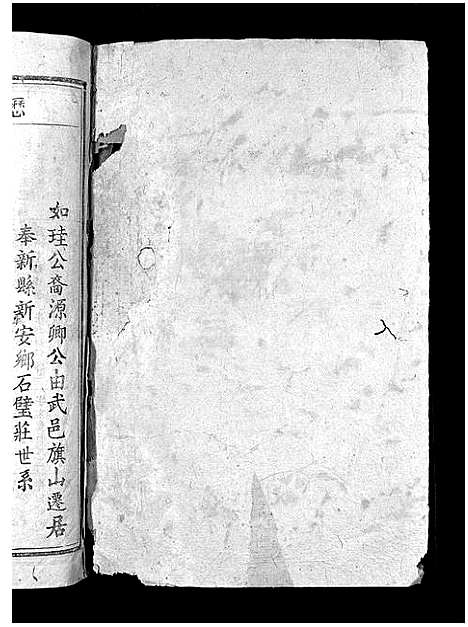 如珪公裔源卿公由武邑旗山遷居
奉新縣新安鄉石璧莊世系